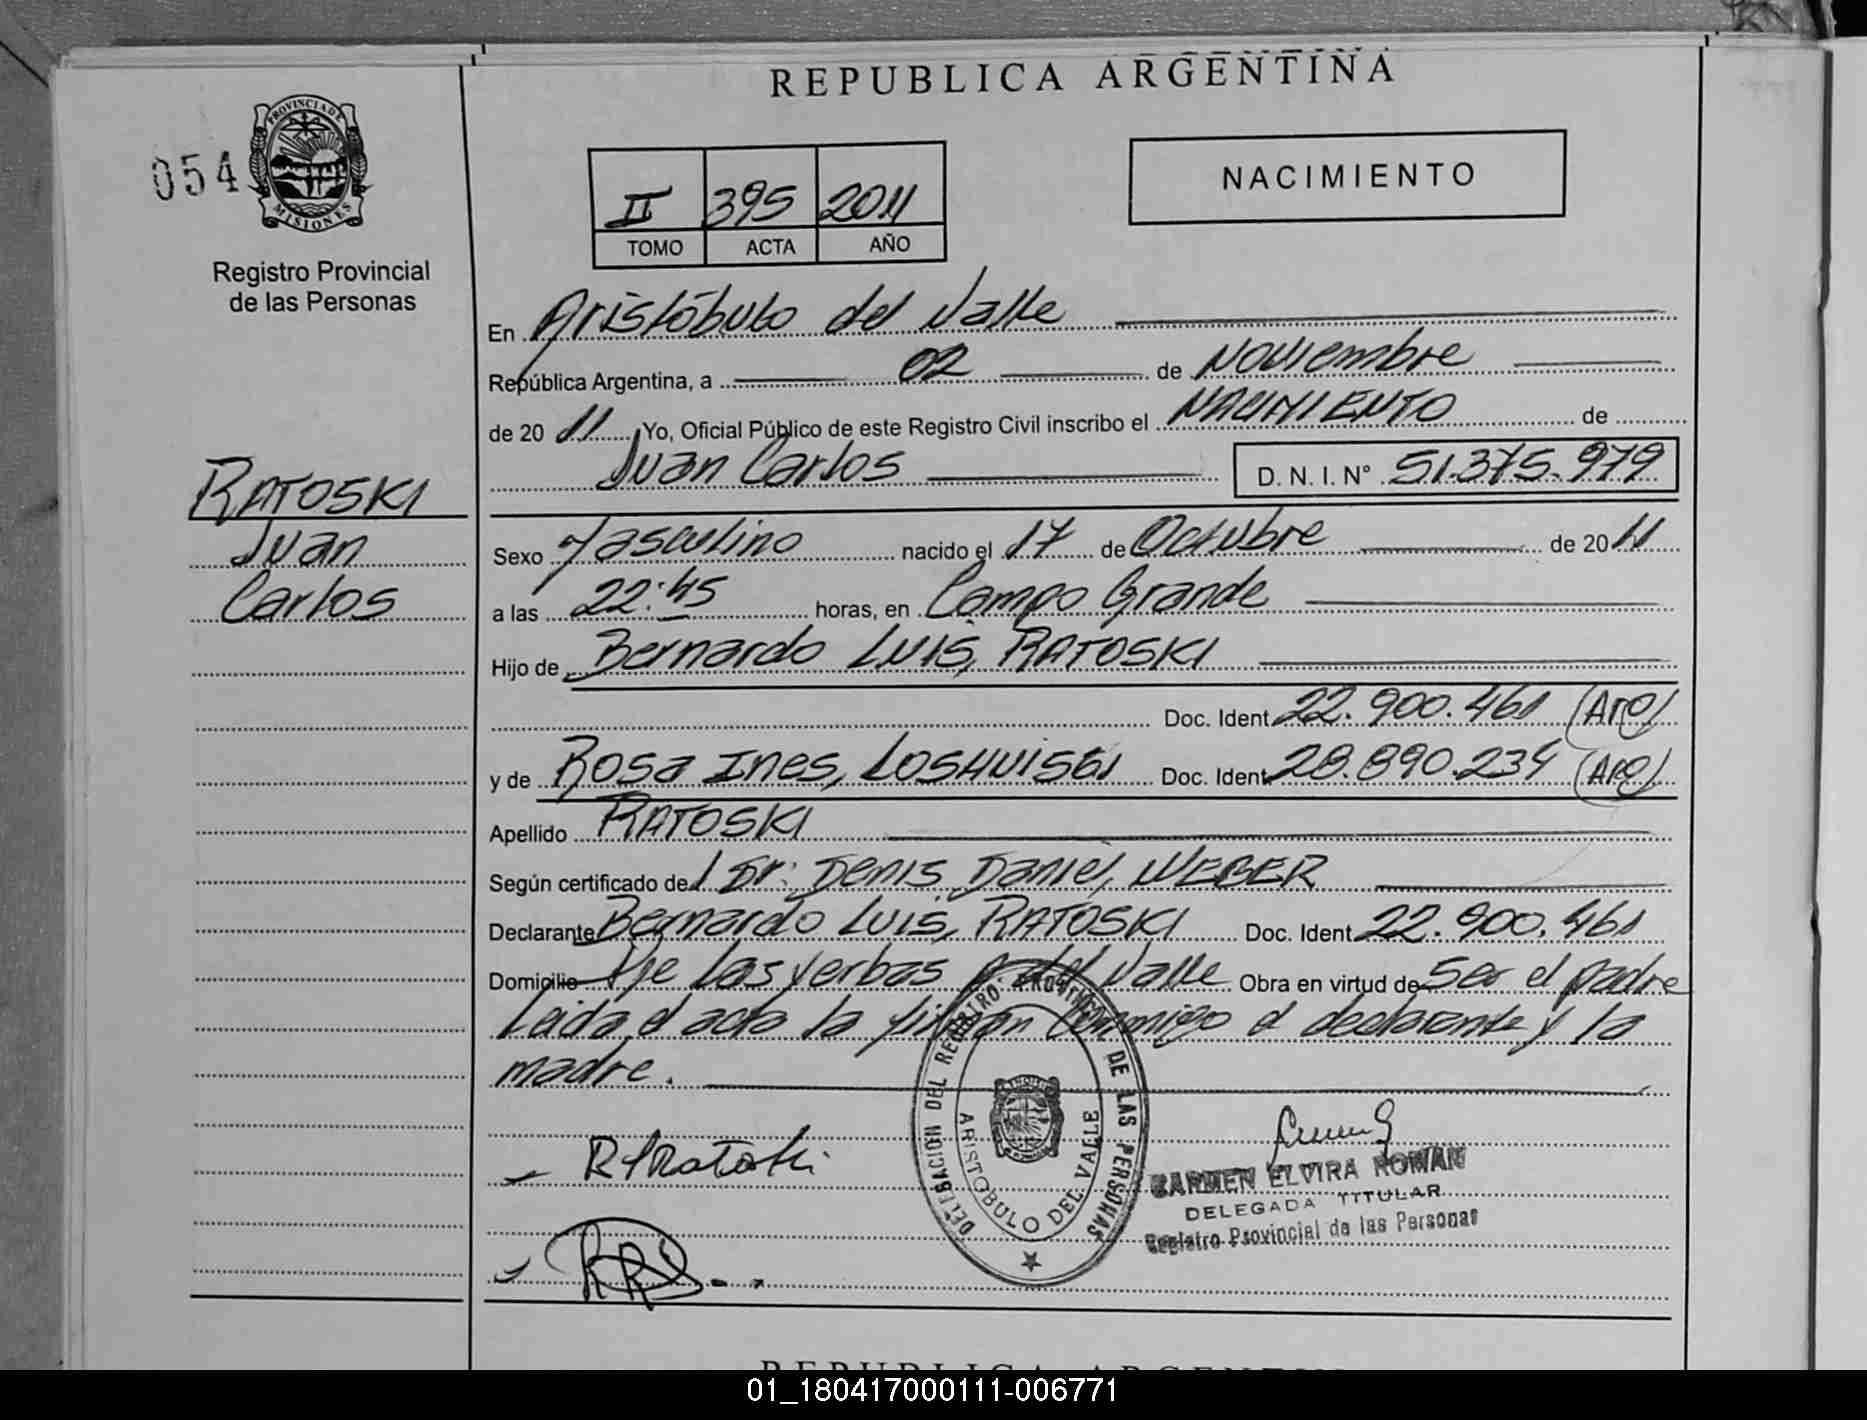 REPUBLICA ARGENTINA
054
PROVINCIA DE
MISIONES
Registro Provincial
de las Personas
II 395 2011
TOMO ACTA AÑO
NACIMIENTO
En Aristóbulo del Valle
República Argentina, a 02 de Noviembre
de 2011 Yo, Oficial Público de este Registro Civil inscribo el NACIMIENTO de
Juan Carlos D. N. I. N° 51.375.979
RATOSKI
Juan
Carlos
Sexo Masculino nacido el 17 de Octubre de 2011
a las 22:45 horas, en Campo Grande
Hijo de Bernardo LUIS, RATOSKI
Doc. Ident 22.900.461 (Arg)
y de Rosa Ines, Doc. Ident 28.890.234 (Arg)
Apellido RATOSKI
Según certificado del Dr: Denis Daniel, WEBER
Declarante Bernardo LUIS, RATOSKI Doc. Ident 22.900.461
Domicilio Las Yerbas A del Valle Obra en virtud de Ser el padre
Leida el acta la firman Conmigo el declarante y la
madre.
DELEGACION DEL REGISTRO PROVINCIAL DE LAS PERSONAS
ARISTOBULO DEL VALLE
CARMEN ELVIRA ROWAN
DELEGADA TITULAR
Registro Provincial de las Personas
REPUBLICA ARGENTINA
01_180417000111-006771